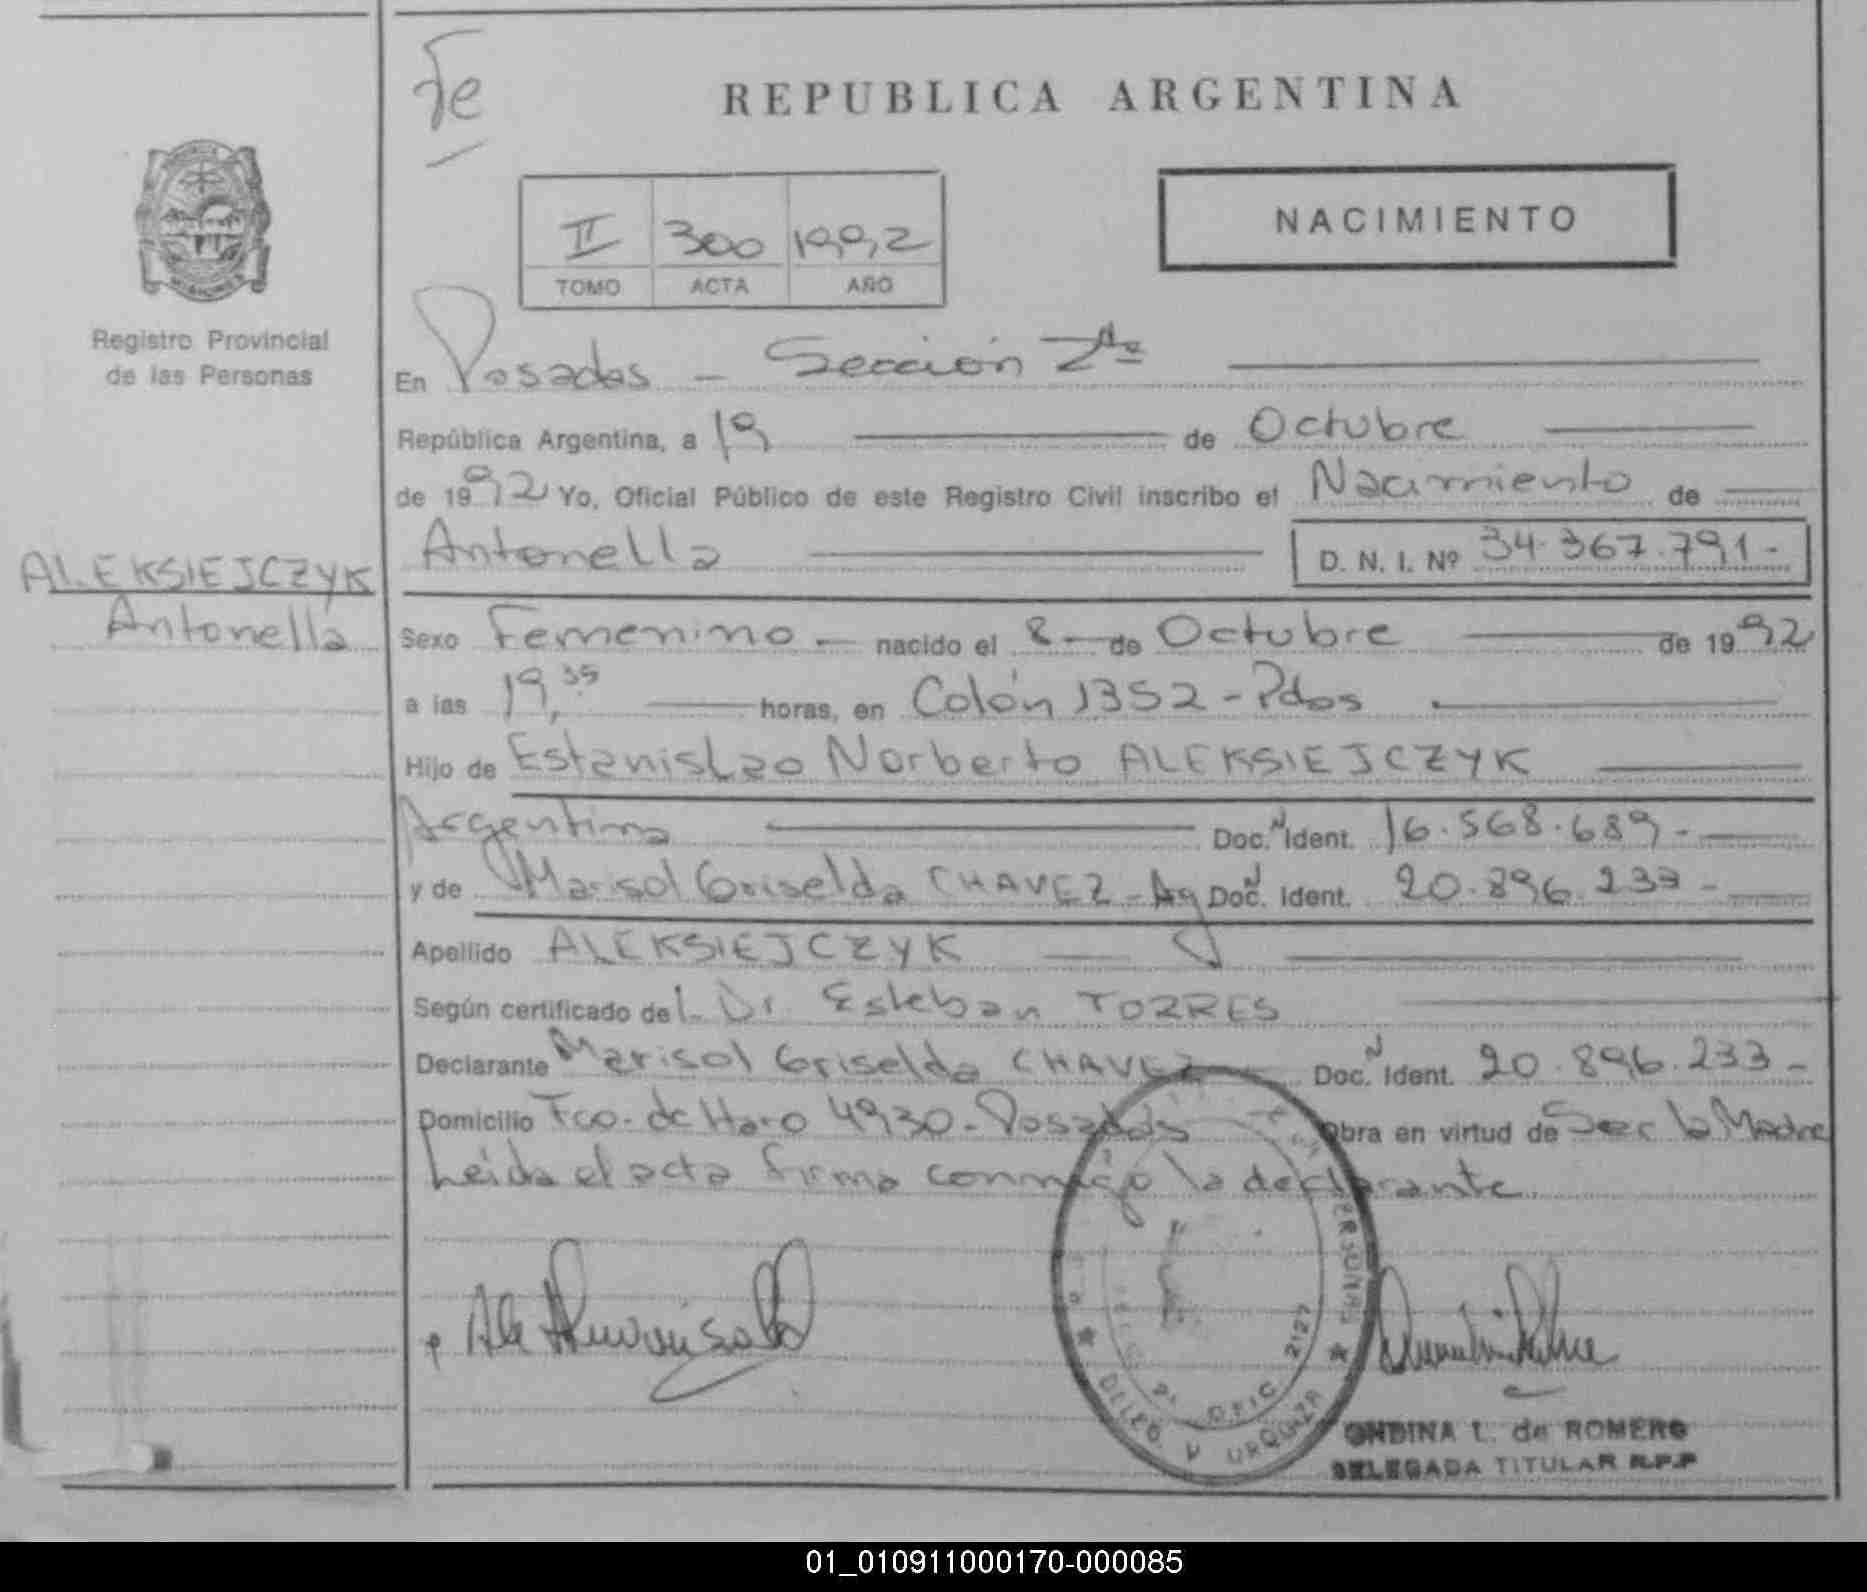 Fe
REPUBLICA ARGENTINA
NACIMIENTO
II 300 1992
TOMO ACTA AÑO
Registro Provincial
de las Personas
En Posadas - Sección 2da
República Argentina, a 19 de Octubre
de 1992 Yo, Oficial Público de este Registro Civil inscribo el Nacimiento de
Antonella D. N. I. Nº 34.367.791.-
ALEKSIEJCZYK
Antonella
Sexo Femenino - nacido el 8 - de Octubre de 1992
a las 19,35 horas, en Colón 1352 - Pdas
Hijo de Estanislao Norberto ALEKSIEJCZYK
Argentino Doc. N Ident. 16.568.689.-
y de Marisol Griselda CHAVEZ - Ag Doc. N Ident. 20.896.233 -
Apellido ALEKSIEJCZYK
Según certificado del Dr. Esteban TORRES
Declarante Marisol Griselda CHAVEZ Doc. N Ident. 20.896.233 -
Domicilio Fco. de Haro 4930 - Posadas Obra en virtud de Ser la Madre
Leída el acta firma conmigo la declarante
PERSONAS
OFIC. 2127
DELEG. V URQUIZA
ONDINA L. de ROMERO
DELEGADA TITULAR R.P.P
01_010911000170-000085